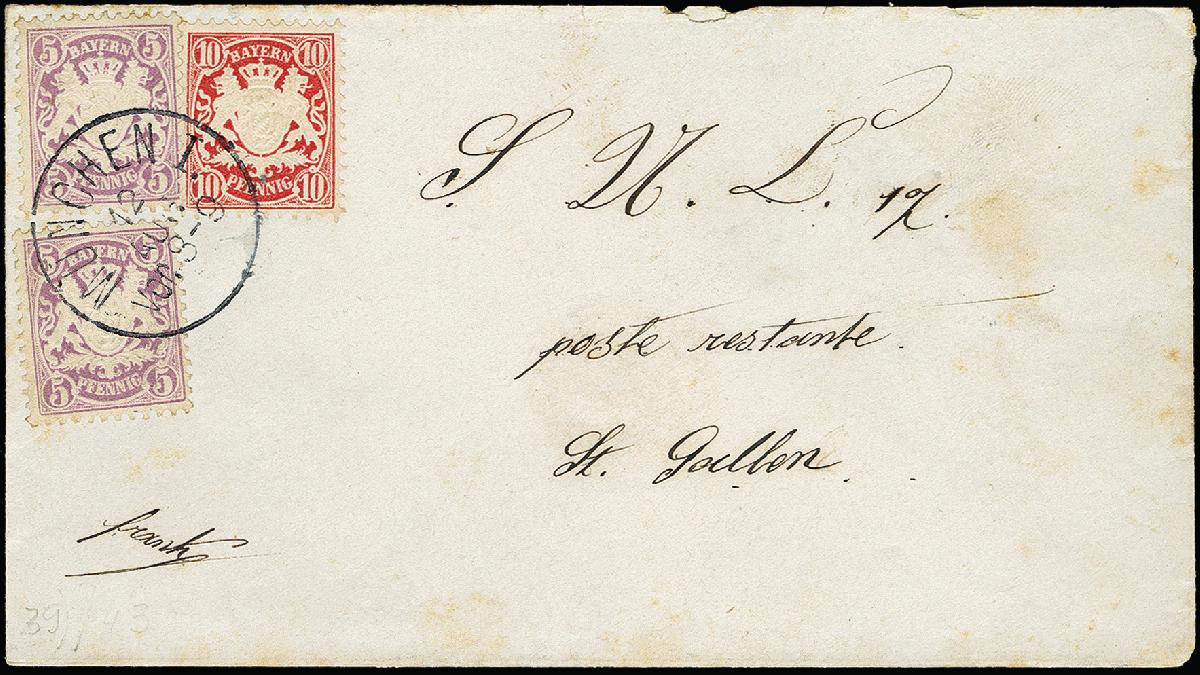 5 BAYERN 5
5 PFENNIG 5
10 BAYERN 10
10 PFENNIG 10
5 BAYERN 5
5 PFENNIG 5
MÜNCHEN I.
12
VOR. 8-9
S. N. L. 17.
poste restante.
St. Gallen.
franko
39// 43